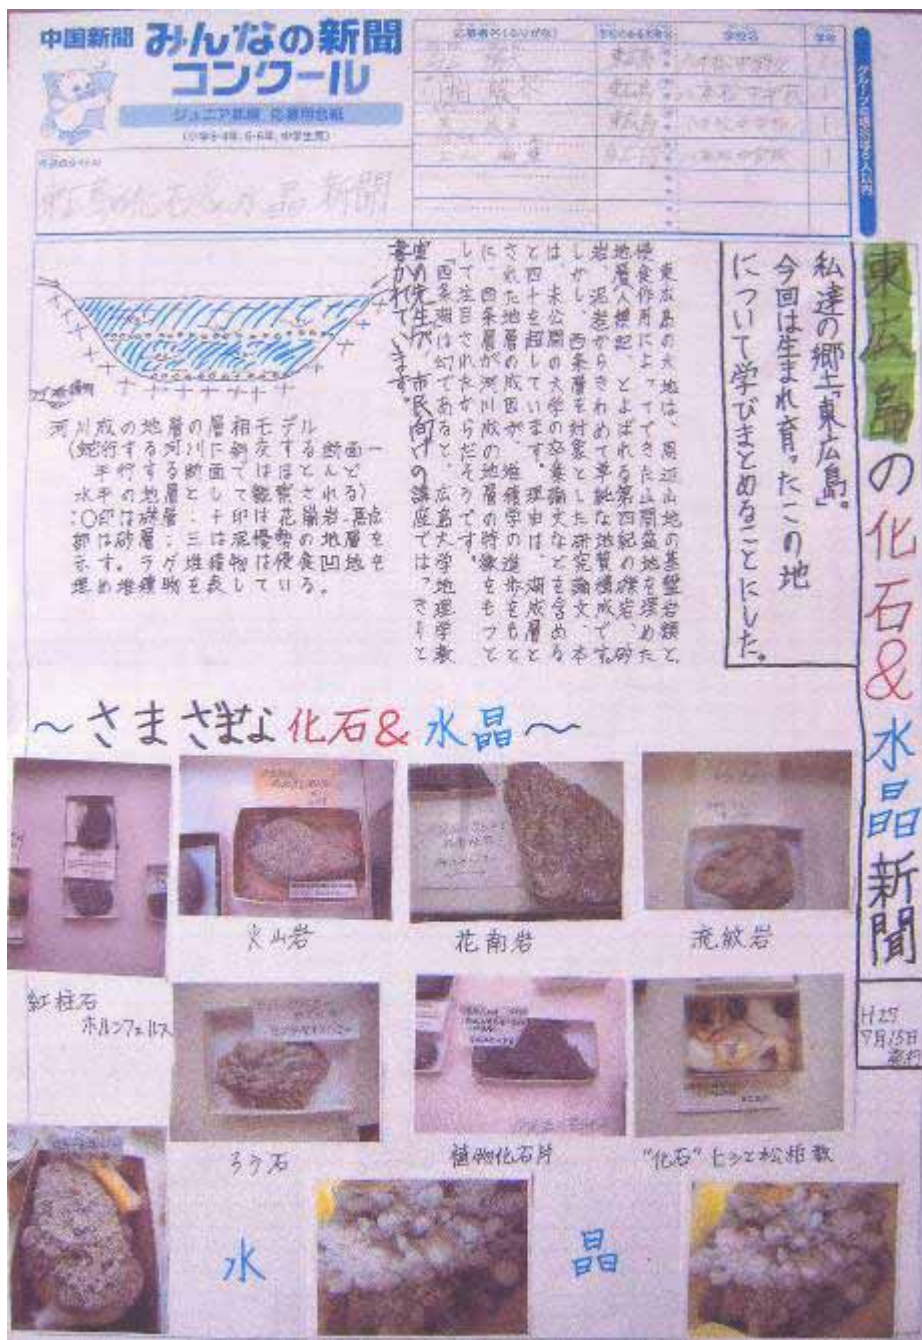 中国新聞 みんなの新聞
コンクール
ジュニア新聞 応募用台紙
(小学3・4年、5・6年、中学生用)
学校名
学年
東広島の化石&水晶新聞
H27
7月15日
発行
私達の郷土「東広島」。
今回は生まれ育ったこの地
について学びまとめることにした。
東広島の大地は、周辺山地の基盤岩類と
侵食作用によってできた山間盆地を埋めた
地層人類紀 とよばれる第四紀の礫岩、砂
岩、泥岩からきわめて単純な地質構成です。
しかし、西条層を対象とした研究論文、本
は、未公開の大学の卒業論文などを含める
と四十を超しています。理由は、湖成層と
された地層の成因が、堆積学の進歩をもと
に、西条層が河川成の地層の特徴をもつと
して注目されたからだそうです。
「西条湖」は幻であると、広島大学地理学教
室の先生が、市民向けの講座では、きりと
書かれています。
河川成の地層の層相モデル
(蛇行する河川に斜交する断面ー
平行する断面ではほとんど
水平の地層として観察される)
:〇印は礫層:十印は花崗岩・黒点
部は砂層:三は泥優勢の地層を
示す。ラグ堆積物は侵食凹地を
埋め堆積物を表している。
~さまざまな化石&水晶~
火山岩
花南岩
流紋岩
紅柱石
ホルンフェルス
ろう石
植物化石片
"化石"ヒシと松柏数
水 晶